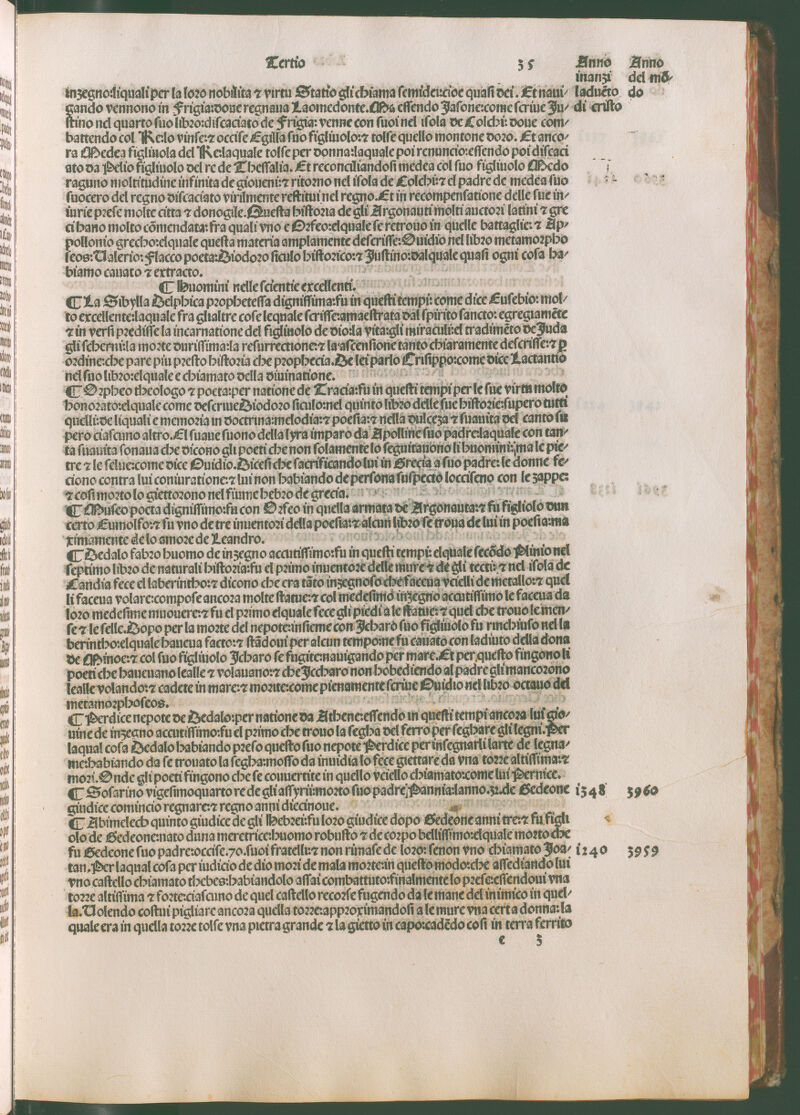 Tertio 35 Anno Anno
inanzi del mō-
inzegno:li quali per la loro nobilita ⁊ virtu Statio gli chiama semidei:cioe quasi dei. Et naui- laduēto do
gando vennono in Frigia:doue regnaua Laomedonte. Ma essendo Jasone:come scriue Ju- di cristo
stino nel quarto suo libro:discaciato de Frigia: venne con suoi nel isola de Colchi: doue com-
battendo col Re:lo vinse:⁊ occise Egilla suo figliuolo:⁊ tolse quello montone doro. Et anco-
ra Medea figliuola del Re:laquale tolse per donna:laquale poi renuncio:essendo poi discaci
ato da Pelio figliuolo del re de Thessalia. Et reconciliandosi medea col suo figliuolo Medo
raguno moltitudine infinita de gioueni:⁊ ritorno nel isola de Colchi:⁊ el padre de medea suo
suocero del regno discaciato virilmente restitui nel regno. Et in recompensatione delle sue in-
iurie prese molte citta ⁊ donogile. Questa historia de gli Argonauti molti auctori latini ⁊ gre
ci hano molto cōmendata:fra quali vno e Orfeo:elquale se retrouo in quelle battaglie:⁊ Ap-
pollonio grecho:elquale questa materia amplamente descrisse:Ouidio nel libro metamorpho
seos:Valerio:Flacco poeta:Diodoro siculo historico:⁊ Justino:dalquale quasi ogni cosa ha-
biamo cauato ⁊ extracto.
¶ Huomini nelle scientie excellenti.
¶ La Sibylla Delphica prophetessa dignissima:fu in questi tempi: come dice Eusebio: mol-
to excellente:laquale fra glialtre cose lequale scrisse:amaestrata dal spirito sancto: egregiamēte
⁊ in versi predisse la incarnatione del figliuolo de dio:la vita:gli miraculi:el tradimēto de Juda
gli scherni:la morte durissima:la resurrectione:⁊ la ascensione tanto chiaramente descrisse:⁊ p
ordine:che pare piu presto historia che prophecia. De lei parlo Crisippo:come dice Lactantio
nel suo libro:elquale e chiamato della diuinatione.
¶ Orpheo theologo ⁊ poeta:per natione de Tracia:fu in questi tempi per le sue virtu molto
honorato:elquale come descriue Diodoro siculo:nel quinto libro delle sue historie:supero tutti
quelli:de li quali e memoria in doctrina:melodia:⁊ poesia:⁊ nella dulceza ⁊ suauita del canto su
pero ciascuno altro. El suaue suono della lyra imparo da Apolline suo padre:laquale con tan-
ta suauita sonaua che dicono gli poeti che non solamente lo seguitauono li huomini:ma le pie-
tre ⁊ le selue:come dice Ouidio. Dicesi che sacrificando lui in Grecia a suo padre: le donne fe-
ciono contra lui coniuratione:⁊ lui non habiando de persona suspecto locciseno con le zappe:
⁊ cosi morto lo giettorono nel fiume hebro de grecia.
¶ Museo poeta dignissimo:fu con Orfeo in quella armata de Argonauta:⁊ fu figliolo dun
certo Eumolfo:⁊ fu vno de tre inuentori della poesia:⁊ alcun libro se troua de lui in poesia:ma
ximamente de lo amore de Leandro.
¶ Dedalo fabro huomo de inzegno accutissimo:fu in questi tempi: elquale secōdo Plinio nel
septimo libro de naturali historia:fu el primo inuentore delle mure ⁊ de gli tecti:⁊ nel isola de
Candia fece el laberintho:⁊ dicono che era tāto inzegnoso che faceua vcielli de metallo:⁊ quel
li faceua volare:compose ancora molte statue:⁊ col medesimo inzegno accutissimo le faceua da
loro medesime muouere:⁊ fu el primo elquale fece gli piedi a le statue:⁊ quel che trouo le men-
se ⁊ le selle. Dopo per la morte del nepote:insieme con Jcharo suo figliuolo fu rinchiuso nel la
berintho:elquale haueua facto:⁊ stādoui per alcun tempo:ne fu cauato con ladiuto della dona
de Minoe:⁊ col suo figliuolo Jcharo se fugite:nauigando per mare. Et per questo fingono li
poeti che haueuano lealle ⁊ volauano:⁊ che Jccharo non hobediendo al padre gli mancorono
lealle volando:⁊ cadete in mare:⁊ morite:come pienamente scriue Ouidio nel libro octauo del
metamorphoseos.
¶ Perdice nepote de Dedalo:per natione da Athene:essendo in questi tempi ancora lui gio-
uine de inzegno accutissimo:fu el primo che trouo la segha del ferro per seghare gli legni. Per
laqual cosa Dedalo habiando preso questo suo nepote Perdice per insegnarli larte de legna-
me:habiando da se trouato la segha:mosso da inuidia lo fece giettare da vna torre altissima:⁊
mori. Onde gli poeti fingono che se conuertite in quello vciello chiamato:come lui Pernice.
¶ Sosarino vigesimoquarto re de gli assyrii:morto suo padre Pannia:lanno.32.de Gedeone 1348 3960
giudice comincio regnare:⁊ regno anni diecinoue.
¶ Abimelech quinto giudice de gli Hebrei:fu loro giudice dopo Gedeone anni tre:⁊ fu figli
olo de Gedeone:nato duna meretrice:huomo robusto ⁊ de corpo bellissimo:elquale morto che
fu Gedeone suo padre:occise.70.suoi fratelli:⁊ non rimase de loro: senon vno chiamato Joa- 1240 3959
tan. Per laqual cosa per iudicio de dio mori de mala morte:in questo modo:che assediando lui
vno castello chiamato thebes:habiandolo assai combattuto:finalmente lo prese:essendoui vna
torre altissima ⁊ forte:ciascuno de quel castello recorse fugendo da le mane del inimico in quel-
la. Volendo costui pigliare ancora quella torre:approximandosi a le mure vna certa donna: la
quale era in quella torre tolse vna pietra grande ⁊ la gietto in capo:cadēdo cosi in terra ferrito
e 3